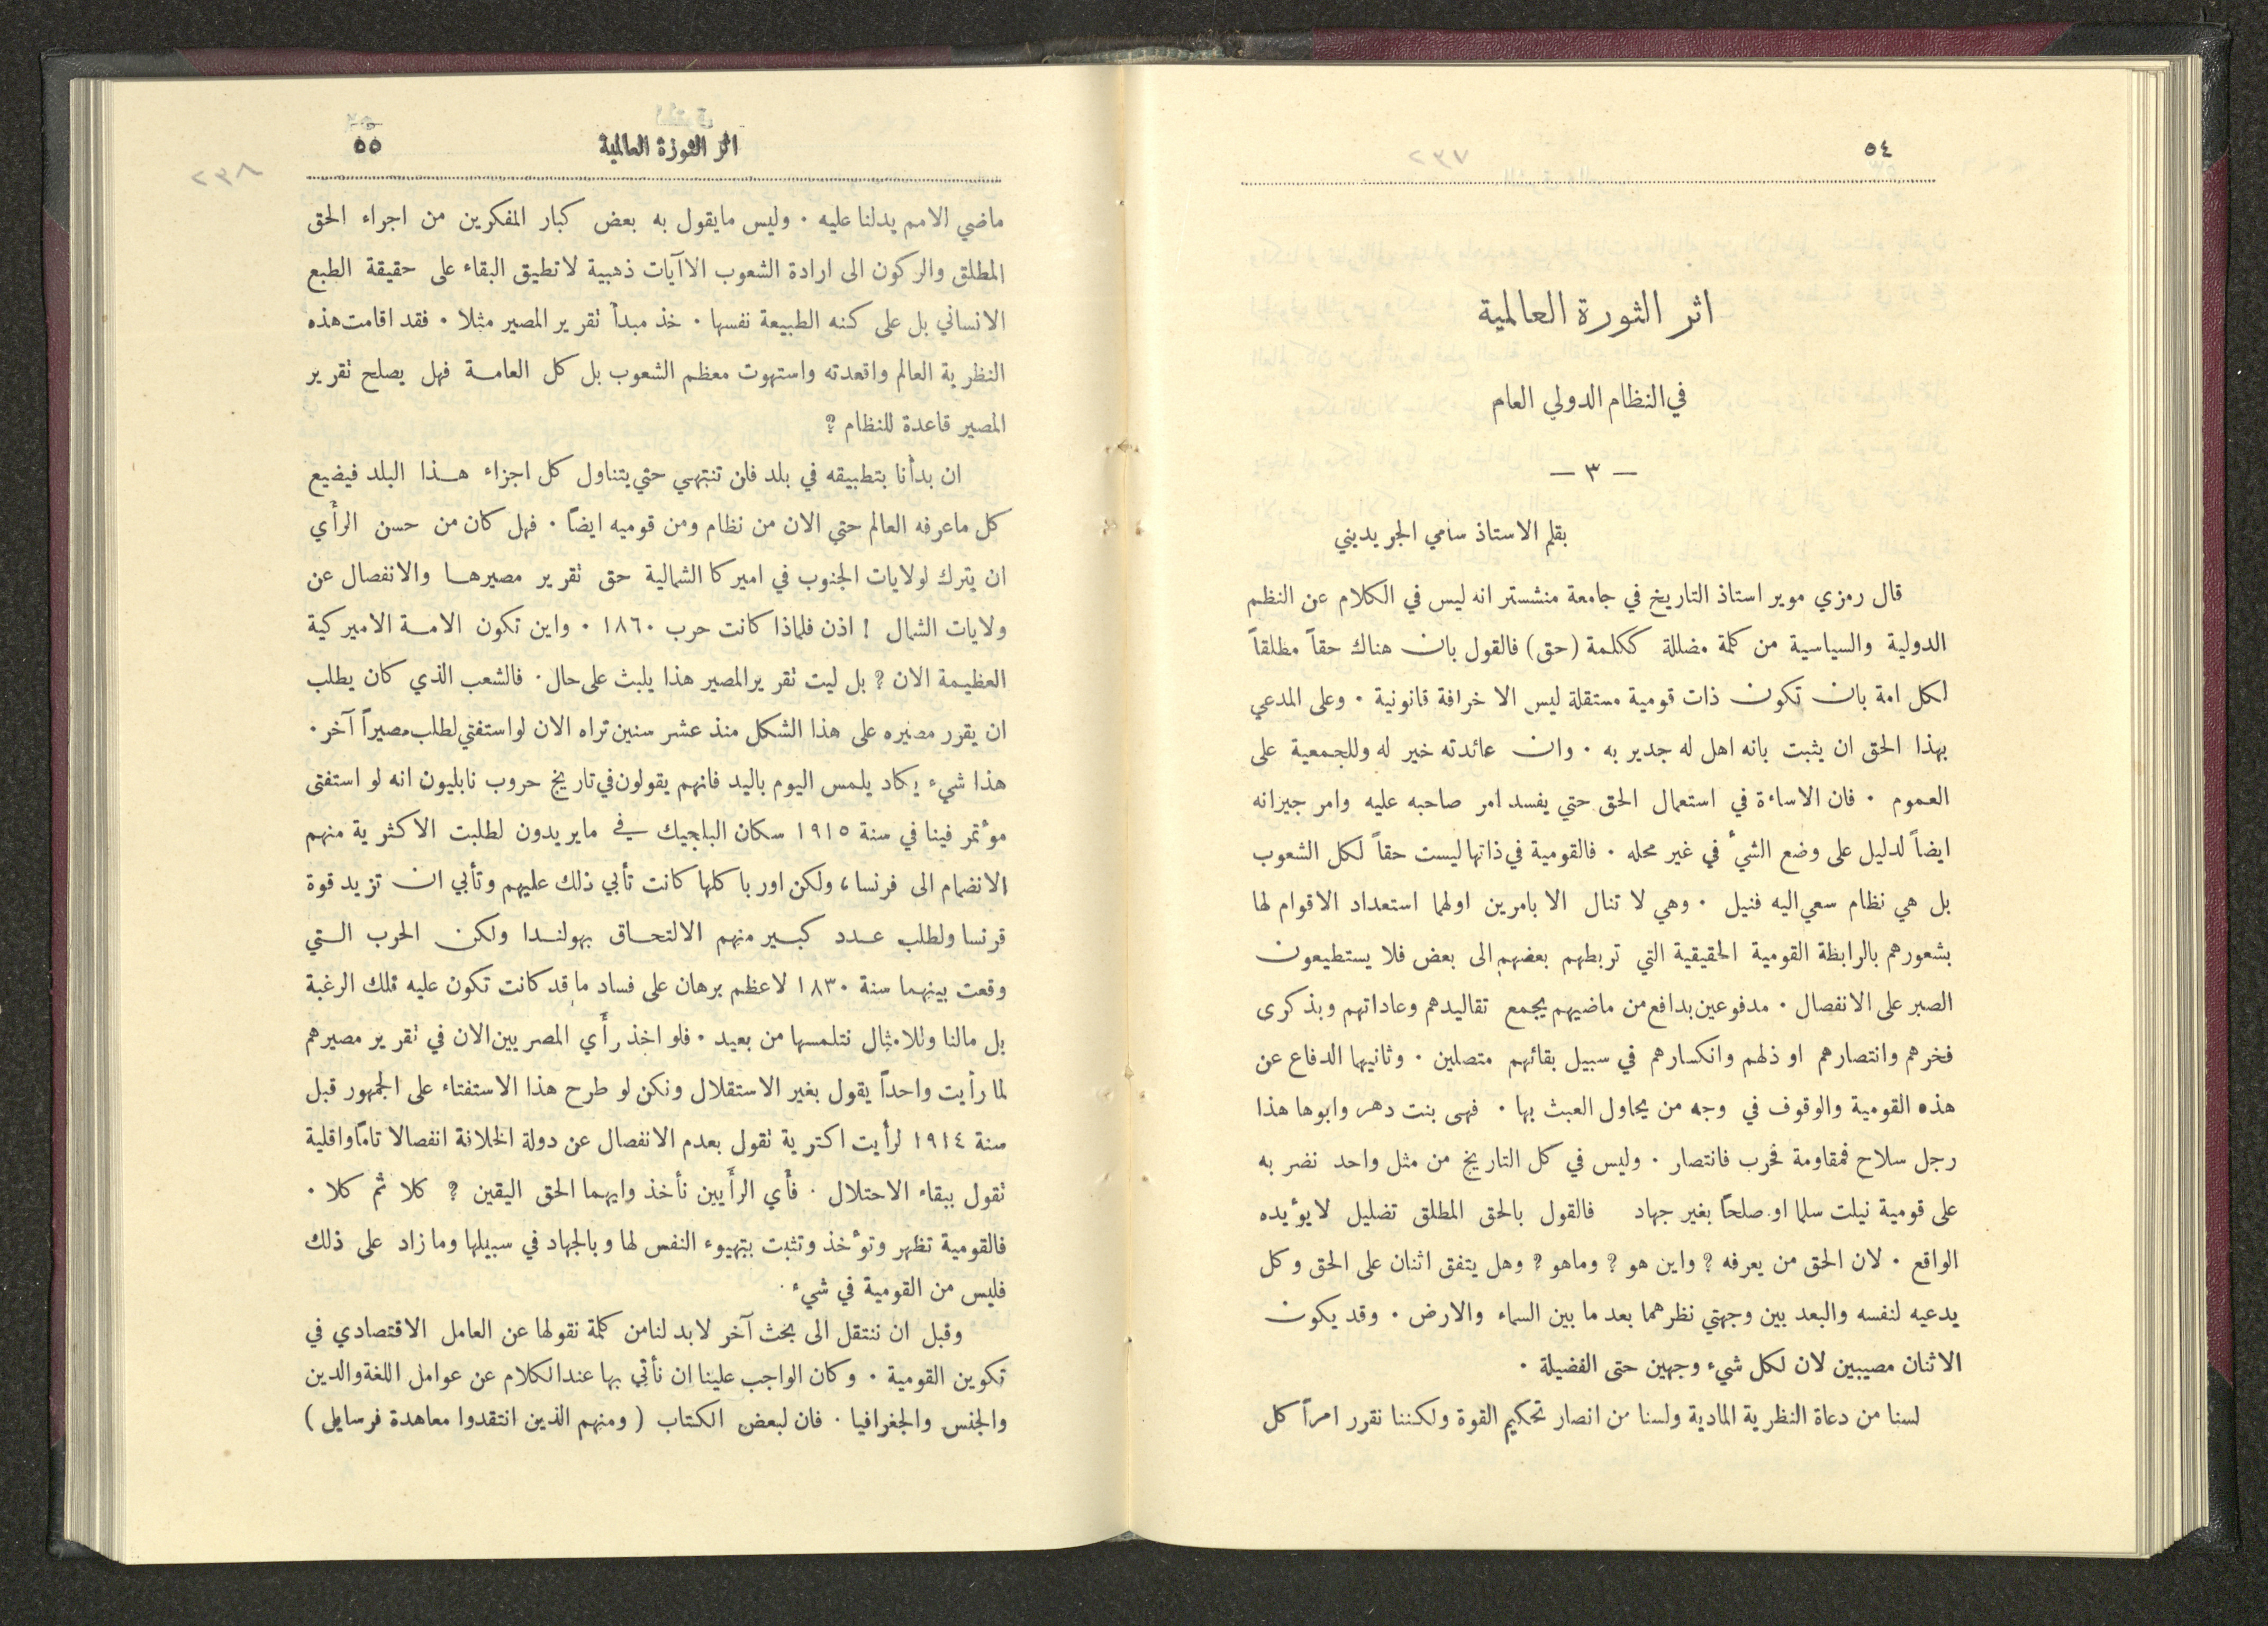 ٥٤
اثر الثورة العالمية
في النظام الدولي العام
— ٣ —
بقلم الاستاذ سامي الجريديني
قال رمزي موير استاذ التاريخ في جامعة منشستر انه ليس في الكلام عن النظم
الدولية والسياسية من كلمة مضللة ككلمة (حق) فالقول بان هناك حقاً مطلقاً
لكل امة بان تكون ذات قومية مستقلة ليس الا خرافة قانونية . وعلى المدعي
بهذا الحق ان يثبت بانه اهل له جدير به . وان عائدته خير له وللجمعية على
العموم . فان الاساءة في استعمال الحق حتي يفسد امر صاحبه عليه وامر جيرانه
ايضاً لدليل على وضع الشيء في غير محله . فالقومية في ذاتها ليست حقاً لكل الشعوب
بل هي نظام سعي اليه فنيل . وهي لا تنال الا بامرين اولهما استعداد الاقوام لها
بشعورهم بالرابطة القومية الحقيقية التي تربطهم بعضهم الى بعض فلا يستطيعون
الصبر على الانفصال . مدفوعين بدافع من ماضيهم يجمع تقاليدهم وعاداتهم وبذكرى
فخرهم وانتصارهم او ذلهم وانكسارهم في سبيل بقائهم متصلين . وثانيهما الدفاع عن
هذه القومية والوقوف في وجه من يحاول العبث بها . فهى بنت دهر وابوها هذا
رجل سلاح فمقاومة فحرب فانتصار . وليس في كل التاريخ من مثل واحد نضر به
على قومية نيلت سلما او صلحاً بغير جهاد فالقول بالحق المطلق تضليل لايؤيده
الواقع . لان الحق من يعرفه ? واين هو ? وماهو ? وهل يتفق اثنان على الحق وكل
يدعيه لنفسه والبعد بين وجهتي نظرهما بعد ما بين السماء والارض . وقد يكون
الاثنان مصيبين لان لكل شيء وجهين حتى الفضيلة .
لسنا من دعاة النظرية المادية ولسنا من انصار تحكيم القوة ولكننا نقرر امراً كل
اثر الثورة العالمية
٥٥
ماضي الامم يدلنا عليه . وليس مايقول به بعض كبار المفكرين من اجراء الحق
المطلق والركون الى ارادة الشعوب الا آيات ذهبية لاتطيق البقاء على حقيقة الطبع
الانساني بل على كنه الطبيعة نفسها . خذ مبدأ تقرير المصير مثلا . فقد اقامت هذه
النظرية العالم واقعدته واستهوت معظم الشعوب بل كل العامة فهل يصلح تقرير
المصير قاعدة للنظام ?
ان بدأنا بتطبيقه في بلد فلن تنتهي حتي يتناول كل اجزاء هذا البلد فيضيع
كل ماعرفه العالم حتي الان من نظام ومن قوميه ايضاً . فهل كان من حسن الرأي
ان يترك لولايات الجنوب في اميركا الشمالية حق تقرير مصيرها والانفصال عن
ولايات الشمال ! اذن فلماذا كانت حرب ١٨٦٠ . واين تكون الامة الاميركية
العظيمة الان ? بل ليت تقرير المصير هذا يلبث على حال . فالشعب الذي كان يطلب
ان يقرر مصيره على هذا الشكل منذ عشر سنين تراه الان لو استفتي لطلب مصيراً آخر .
هذا شيء يكاد يلمس اليوم باليد فانهم يقولون في تاريخ حروب نابليون انه لو استفتى
مؤتمر فينا في سنة ١٩١٥ سكان البلجيك في مايريدون لطلبت الاكثرية منهم
الانضمام الى فرنسا، ولكن اوربا كلها كانت تأبي ذلك عليهم وتأبي ان تزيد قوة
فرنسا ولطلب عدد كبير منهم الالتحاق بهولندا ولكن الحرب التي
وقعت بينهما سنة ١٨٣٠ لاعظم برهان على فساد ما قد كانت تكون عليه تلك الرغبة
بل مالنا وللامثال نتلمسها من بعيد . فلو اخذ رأي المصريين الان في تقرير مصيرهم
لما رأيت واحداً يقول بغير الاستقلال ولكن لو طرح هذا الاستفتاء على الجمهور قبل
سنة ١٩١٤ لرأيت اكثرية تقول بعدم الانفصال عن دولة الخلافة انفصالا تاماً واقلية
تقول ببقاء الاحتلال . فأي الرأيين نأخذ وايهما الحق اليقين ? كلا ثم كلا .
فالقومية تظهر وتؤخذ وتثبت بتهيوء النفس لها وبالجهاد في سبيلها وما زاد على ذلك
فليس من القومية في شيء .
وقبل ان ننتقل الى بحث آخر لابد لنا من كلمة نقولها عن العامل الاقتصادي في
تكوين القومية . وكان الواجب علينا ان نأتي بها عند الكلام عن عوامل اللغة والدين
والجنس والجغرافيا . فان لبعض الكتاب ( ومنهم الذين انتقدوا معاهدة فرسايل )